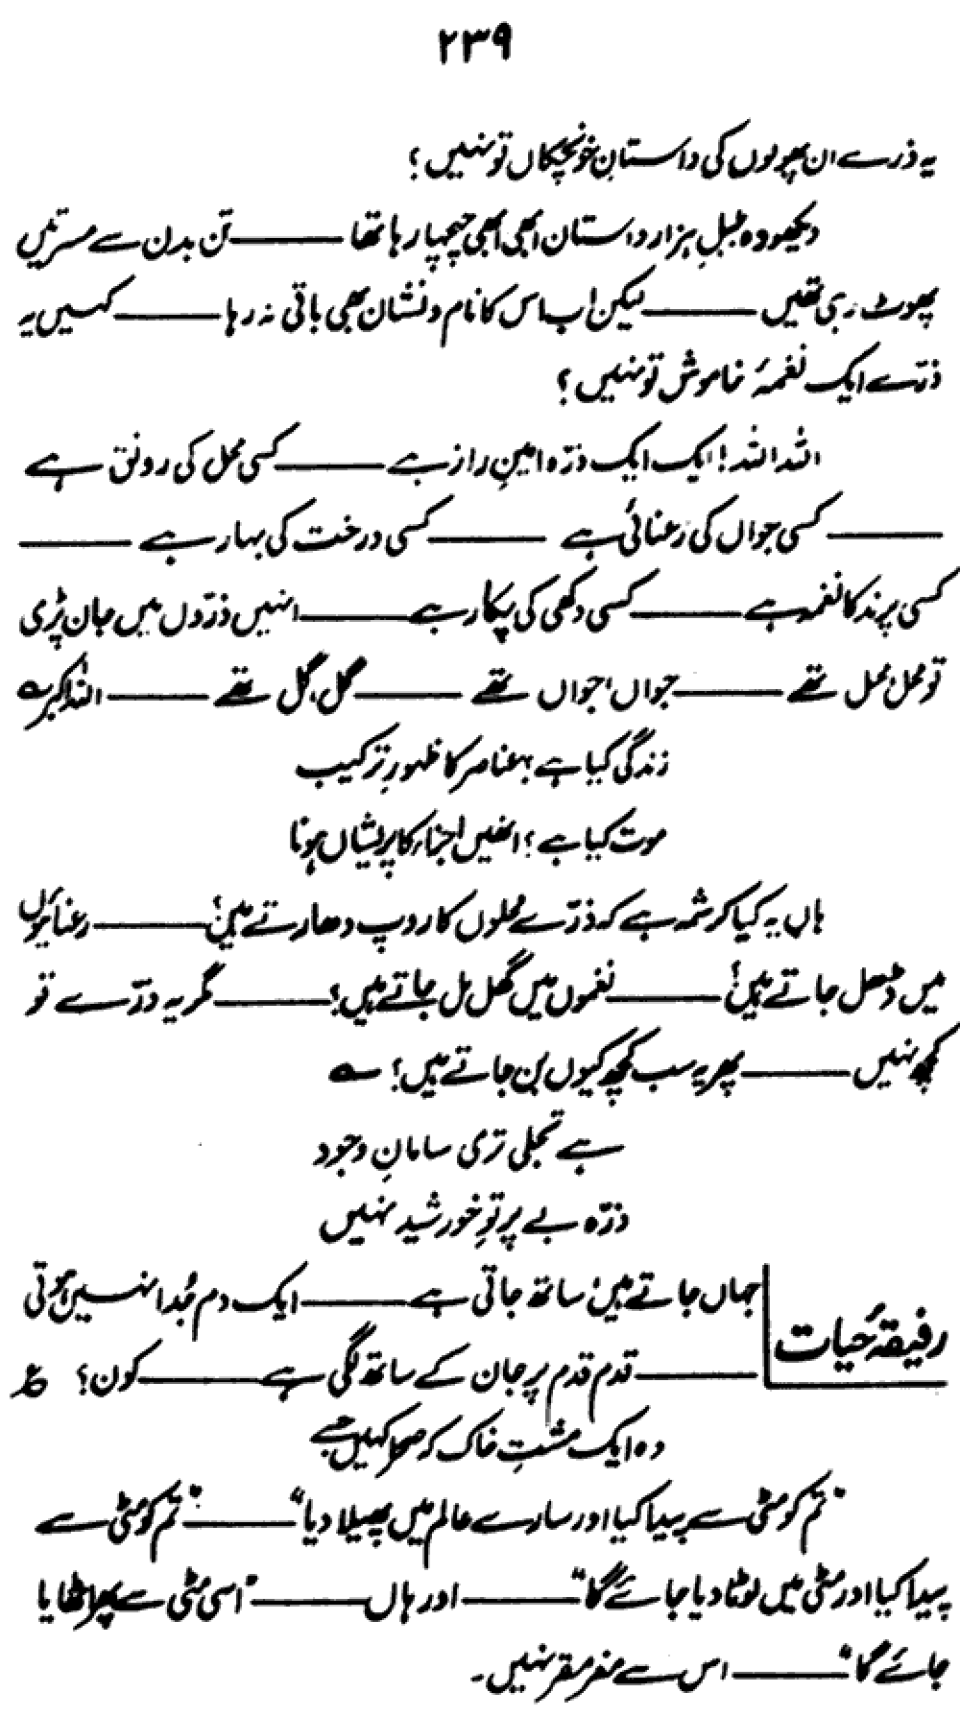 ۲۳۹
یہ ذرے ان پھولوں کی داستانِ خونچکاں تو نہیں؟
دیکھو وہ بلبلِ ہزار داستان ابھی ابھی چہچہا رہا تھا ——— تن بدن سے مسرتیں
پھوٹ رہی تھیں ——— لیکن اب اس کا نام و نشان بھی باقی نہ رہا ——— کہیں یہ
ذرّے ایک نغمۂ خاموش تو نہیں؟
اللہ اللہ! ایک ایک ذرّہ امینِ راز ہے ——— کسی محل کی رونق ہے
——— کسی جواں کی رعنائی ہے ——— کسی درخت کی بہار ہے ———
کسی پرند کا نغمہ ہے ——— کسی دکھی کی پکار ہے ——— انہیں ذرّوں میں جان پڑی
تو محل، محل تھے ——— جواں، جواں تھے ——— گل، گل تھے ——— اللہ اکبر ؎
زندگی کیا ہے؟ عناصر کا ظہورِ ترکیب
موت کیا ہے؟ انھیں اجزاء کا پریشاں ہونا
ہاں یہ کیا کرشمہ ہے کہ ذرّے محلوں کا روپ دھارتے ہیں؟ ——— رعنائیوں
میں ڈھل جاتے ہیں؟ ——— نغموں میں گھل مل جاتے ہیں؟ ——— مگر یہ ذرّے تو
کچھ نہیں ——— پھر یہ سب کچھ کیوں بن جاتے ہیں؟ ؎
ہے تجلی تری سامانِ وجود
ذرّہ بے پرتوِ خورشید نہیں
رفیقۂ حیات
جہاں جاتے ہیں، ساتھ جاتی ہے ——— ایک دم جُدا نہیں ہوتی
——— قدم قدم پر جان کے ساتھ لگی ہے ——— کون؟ ع
وہ ایک مشتِ خاک کہ صحرا کہیں جسے
"تم کو مٹی سے پیدا کیا اور سارے عالم میں پھیلا دیا" ——— "تم کو مٹی سے
پیدا کیا اور مٹی میں لوٹا دیا جائے گا" ——— اور ہاں ——— "اسی مٹی سے پھر اٹھایا
جائے گا" ——— اس سے مفر مقر نہیں۔